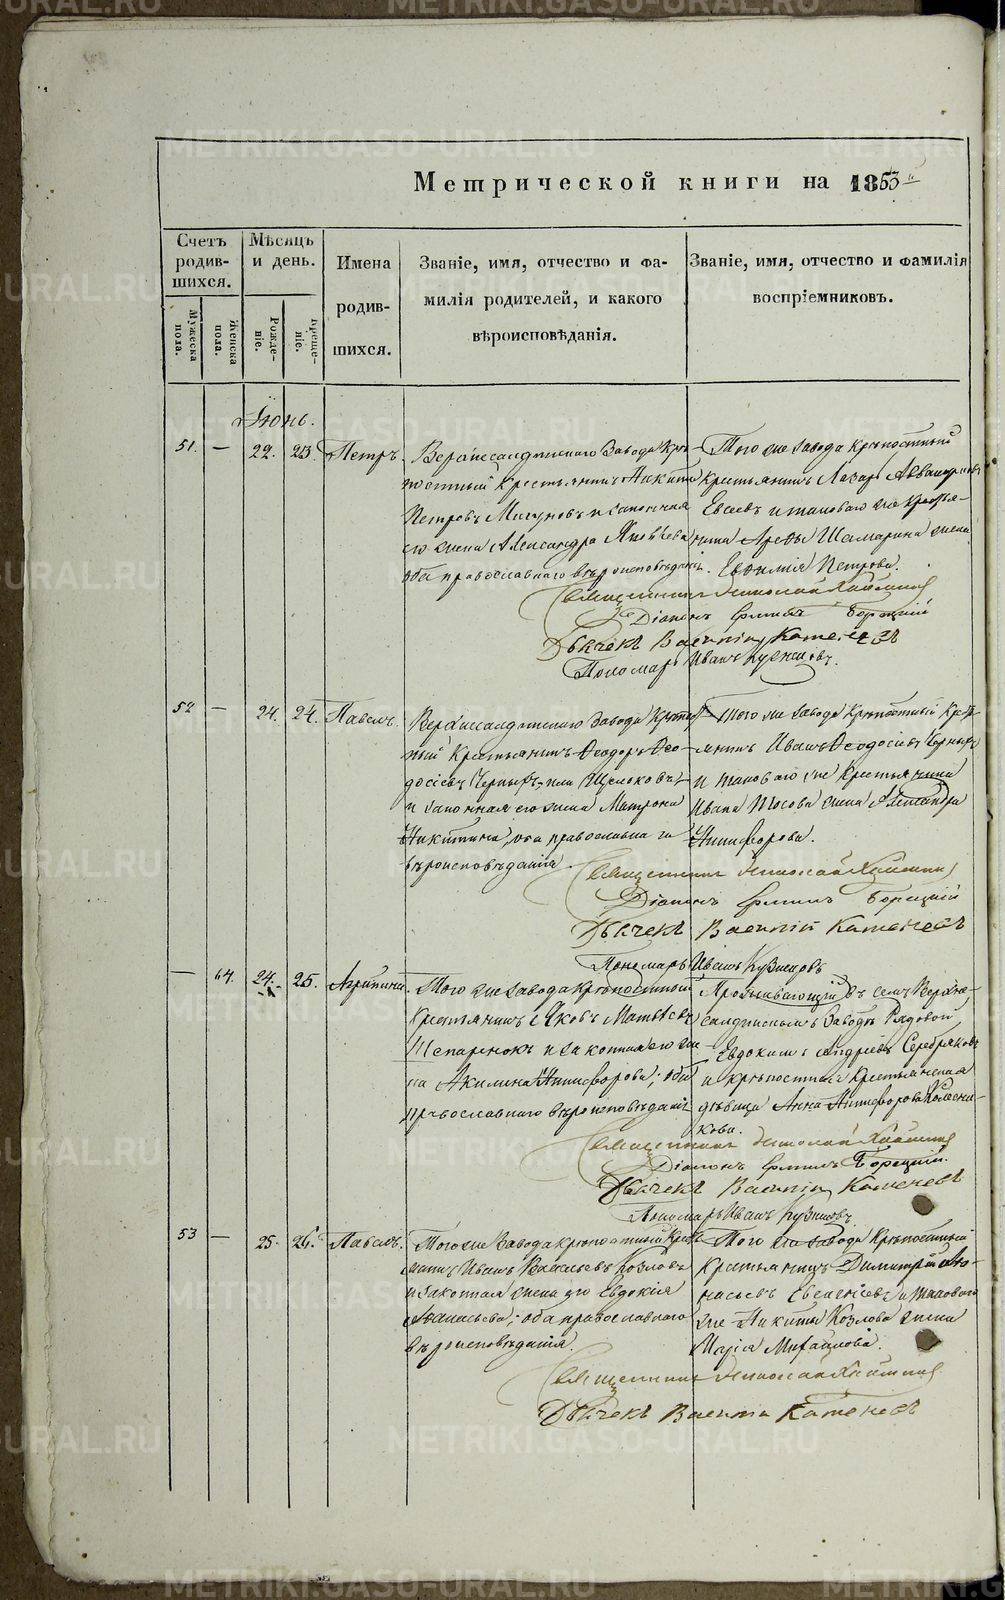 METRIKI.GASO-URAL.RU
Метрической книги на 1853й
Счетъ родив-шихся.
Мужеска пола.
Женска пола.
Мѣсяцъ и день.
Рожде-ніе.
Креще-ніе.
Имена родив-шихся.
Званіе, имя, отчество и фа-
милія родителей, и какого
вѣроисповѣданія.
Званіе, имя, отчество и фамилія
воспріемниковъ.
Іюнь.
51. — 22. 23. Петръ.
Верхнесалдинскаго Завода Крѣ-
постный Крестьянинъ Никита
Петровъ и законная
его жена Александра Яковлева
оба православнаго вѣроисповѣданія.
Того же Завода Крѣпостный
Крестьянинъ Лазарь
Евсѣевъ и таковаго же Крестья-
нина Шамарина жена
Евфимія Петрова.
Священникъ Николай
Діаконъ Борецкій
Дьячекъ Василій Каменевъ
Пономарь Иванъ Кузнецовъ.
52 — 24. 24. Павелъ.
Верхнесалдинскаго Завода Крѣпост-
ный Крестьянинъ Ѳеодоръ Ѳео-
досіевъ Черныхъ, или Щелоковъ,
и законная его жена Матрона
Никитина, оба православнаго
вѣроисповѣданія.
Того же Завода Крѣпостный Кресть-
янинъ Иванъ Ѳеодосіевъ Черныхъ
и таковаго же Крестьянина
Ивана Носова жена Александра
Никифорова.
Священникъ Николай
Діаконъ Борецкій
Дьячекъ Василій Каменевъ
Пономарь Иванъ Кузнецовъ
— 64. 24. 25. Агрипина.
Того же Завода Крѣпостный
Крестьянинъ Яковъ Матвѣевъ
и законная его же-
на Акилина Никифорова, оба
православнаго вѣроисповѣданія
Проживающій въ селѣ Верхне-
салдинскомъ Заводѣ Рядовой
Евдокимъ Андреевъ Серебряковъ
и крѣпостная Крестьянская
дѣвица Анна Никифорова Колесни-
кова.
Священникъ Николай
Діаконъ Борецкій.
Дьячекъ Василій Каменевъ
Пономарь Иванъ Кузнецовъ
53 — 25. 26. Павелъ.
Того же Завода Крѣпостный Кресть-
янинъ Иванъ Васильевъ Козловъ
и законная жена его Евдокія
Аѳанасьева, оба православнаго
вѣроисповѣданія.
Того же Завода Крѣпостный
Крестьянинъ Димитрій Аѳа-
насьевъ Евсѣгнѣевъ и таковаго
же Никиты Козлова жена
Марія Михайлова.
Священникъ Николай
Дьячекъ Василій Каменевъ